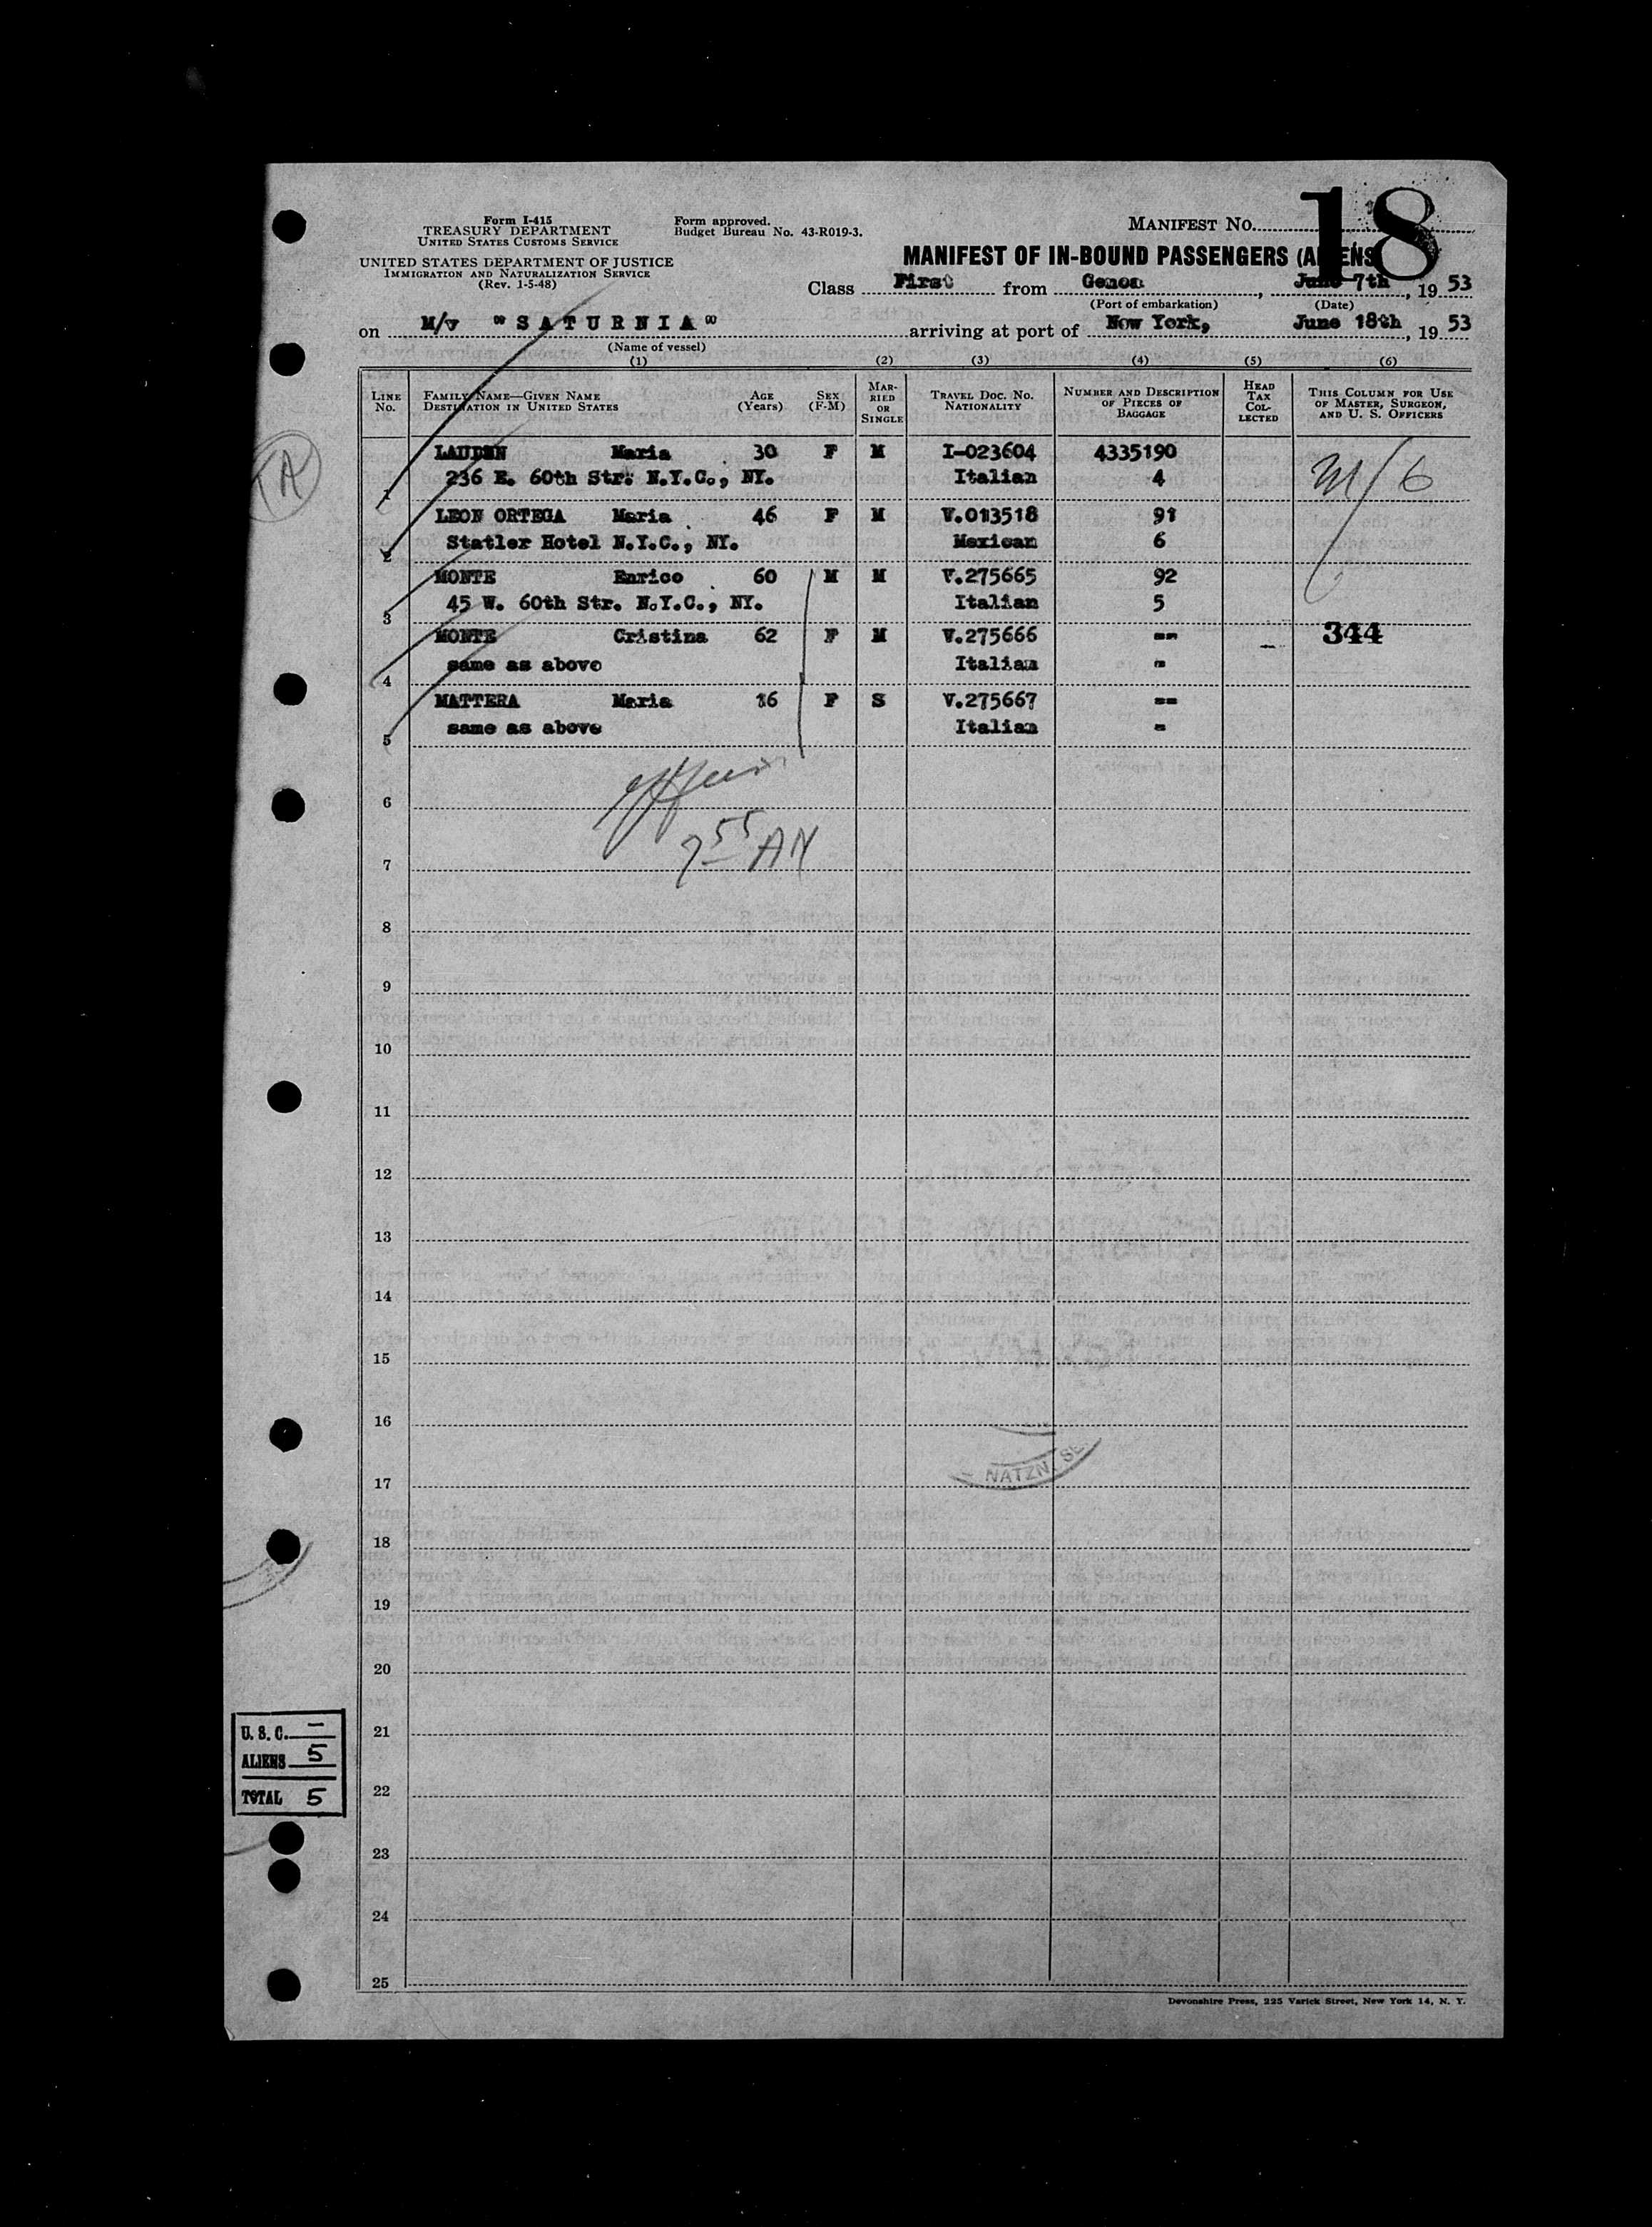 Form I-415
TREASURY DEPARTMENT
UNITED STATES CUSTOMS SERVICE
UNITED STATES DEPARTMENT OF JUSTICE
IMMIGRATION AND NATURALIZATION SERVICE
(Rev. 1-5-48)
Form approved.
Budget Bureau No. 43-R019-3.
MANIFEST No. 18
MANIFEST OF IN-BOUND PASSENGERS (ALIENS)
Class First from Genoa, June 7th, 19 53
(Port of embarkation) (Date)
on M/v "SATURNIA" arriving at port of New York, June 18th, 19 53
(Name of vessel)
(1) (2) (3) (4) (5) (6)
LINE No. FAMILY NAME—GIVEN NAME DESTINATION IN UNITED STATES AGE (Years) SEX (F-M) MARRIED OR SINGLE TRAVEL DOC. NO. NATIONALITY NUMBER AND DESCRIPTION OF PIECES OF BAGGAGE HEAD TAX COLLECTED THIS COLUMN FOR USE OF MASTER, SURGEON, AND U. S. OFFICERS
(A)
LAUDEN Maria 30 F M I-023604 4335190
1 236 E. 60th Str. N.Y.C., NY. Italian 4
LEON ORTEGA Maria 46 F M V.013518 91
2 Statler Hotel N.Y.C., NY. Mexican 6
MONTE Enrico 60 M M V.275665 92
3 45 W. 60th Str. N.Y.C., NY. Italian 5
MONTE Cristina 62 F M V.275666 -- – 344
4 same as above Italian -
MATTERA Maria 16 F S V.275667 --
5 same as above Italian -
6
7 7 55 AM
8
9
10
11
12
13
14
15
16
17
NATZN. SE
18
19
20
21
22
23
24
25
U. S. C. –
ALIENS 5
TOTAL 5
Devonshire Press, 225 Varick Street, New York 14, N. Y.